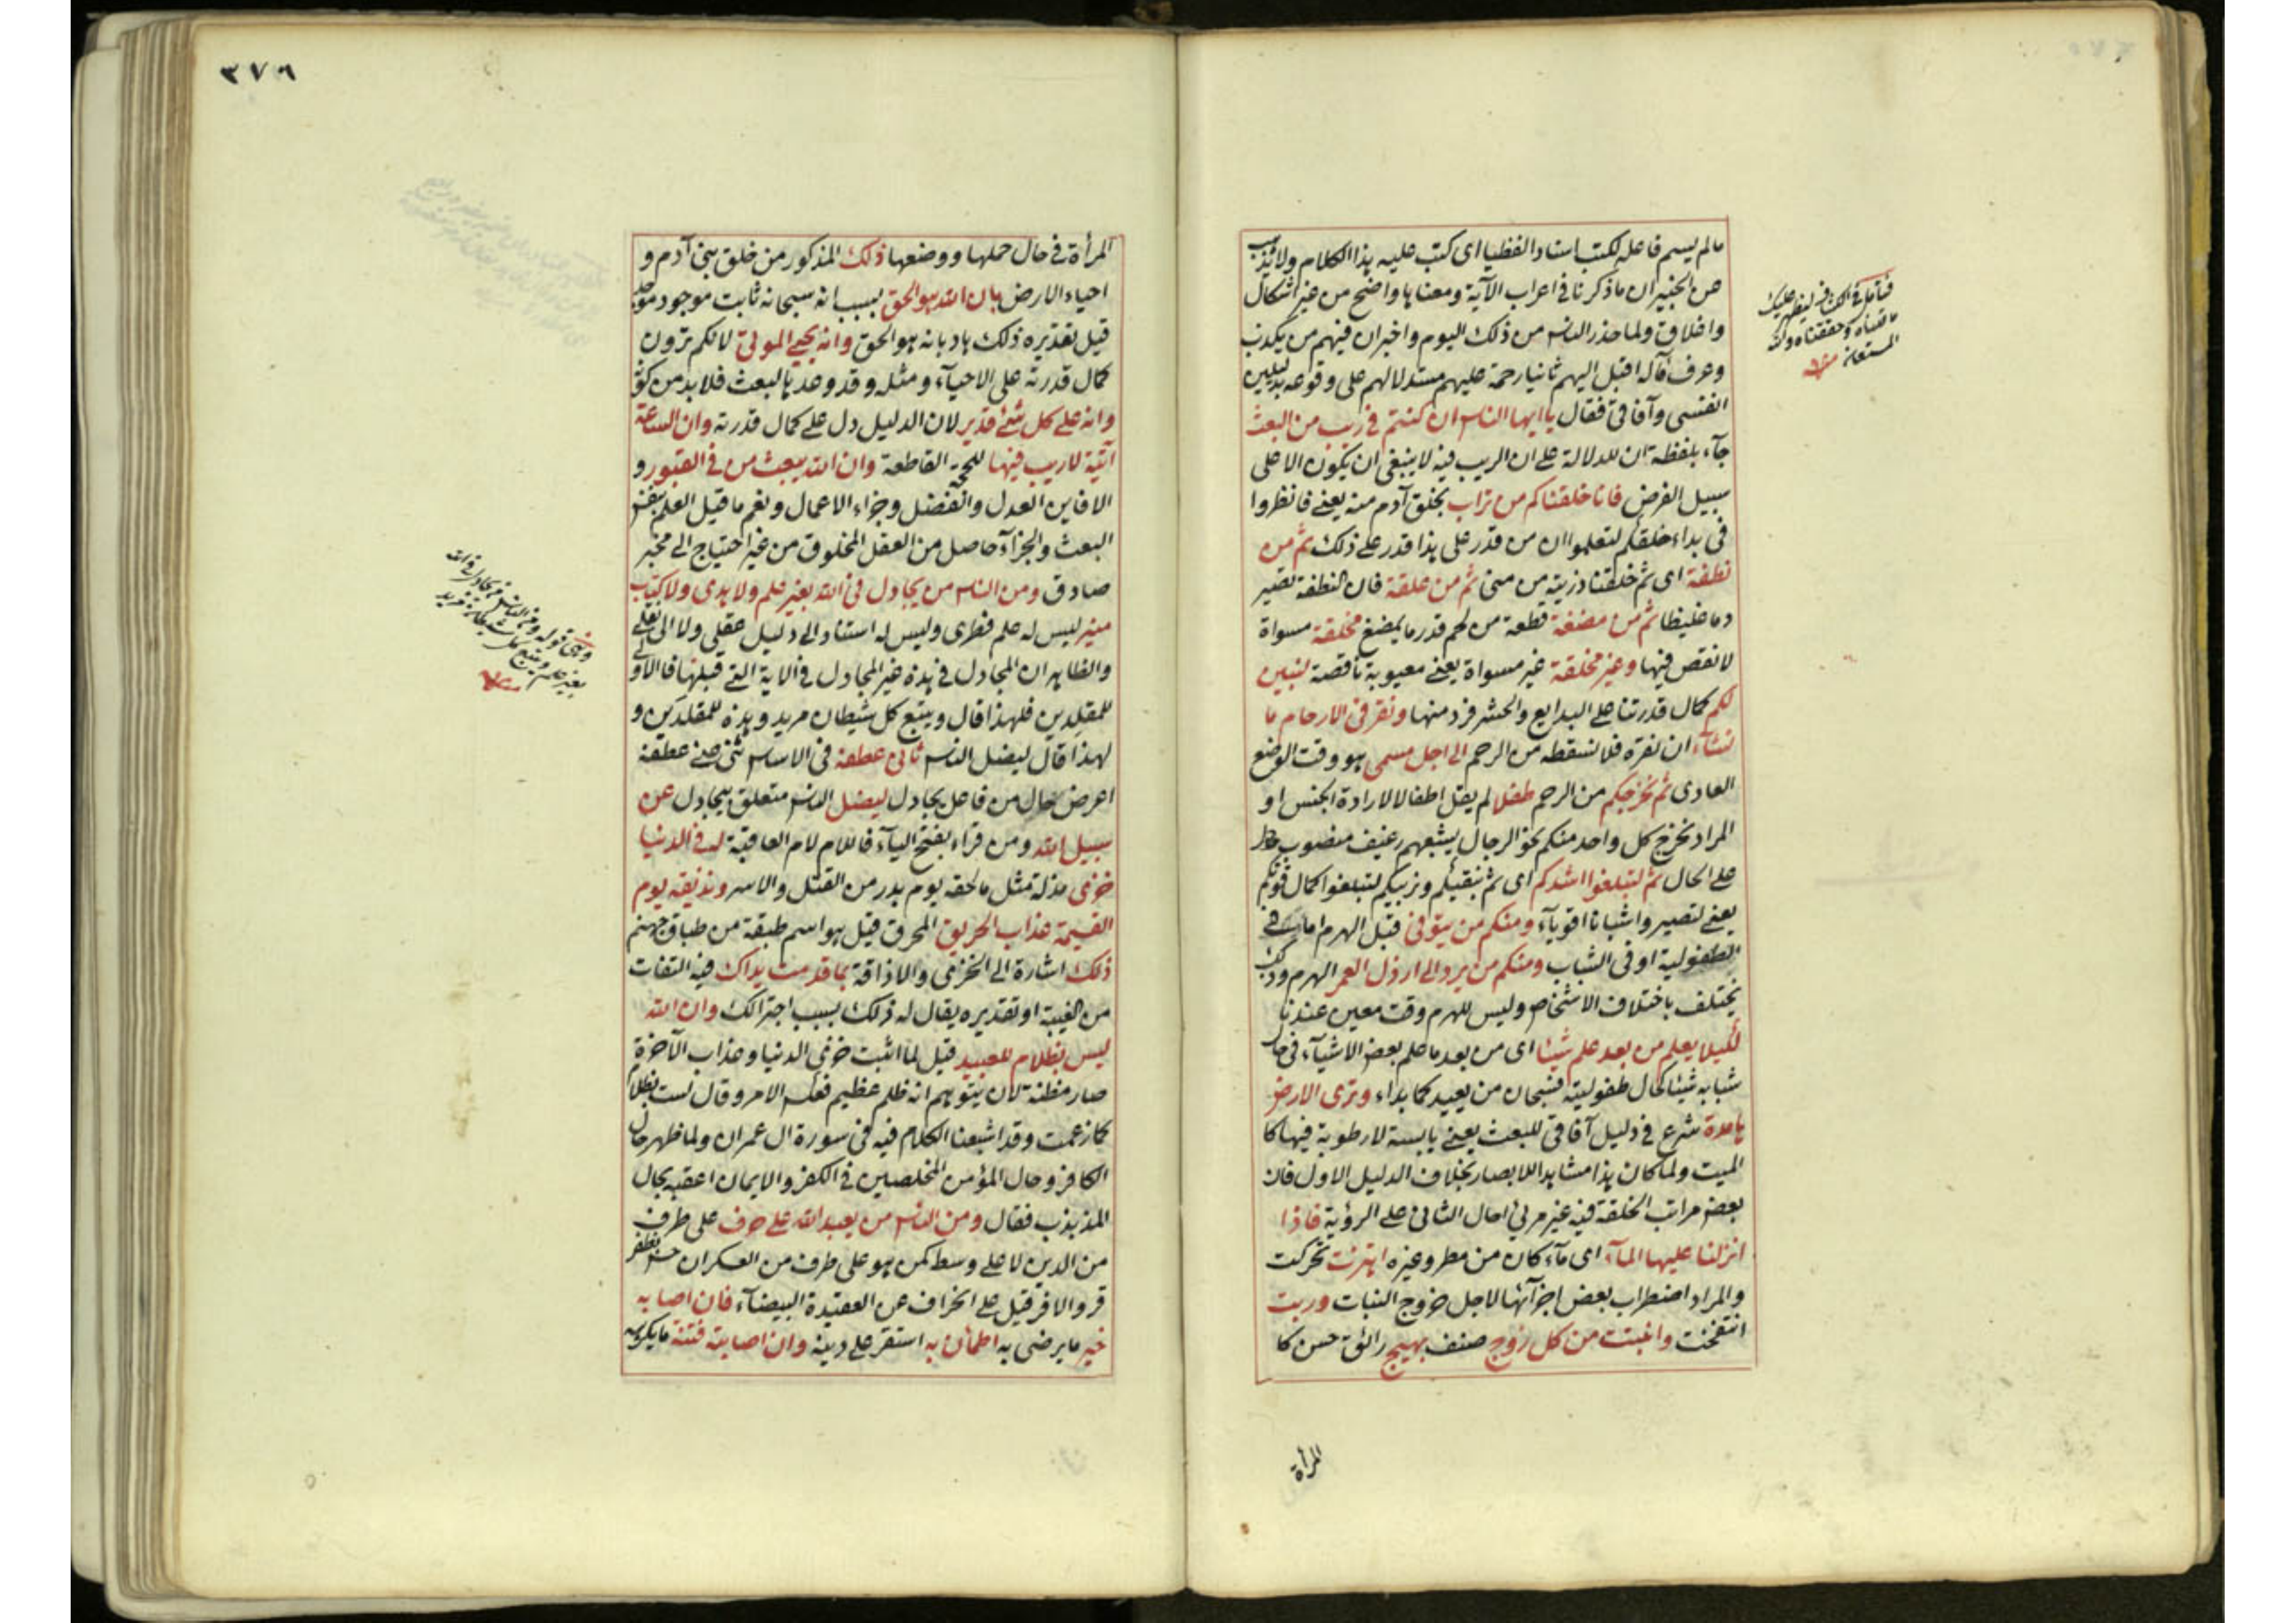 مالم يسم فاعله لكتب اسنادا لفظيا اى كتب عليه هذا الكلام ولا يذهب
عن الخبير ان ما ذكرنا فى اعراب الآية ومعناها واضح من غير اشكال
واغلاق ولما حذر الناس من ذلك اليوم واخبر ان فيهم من يكذب
وعرف مآله اقبل اليهم ثانيا رحمة عليهم مستدلا لهم على وقوعه بدليلين
انفسى وآفاقى فقال يا ايها الناس ان كنتم فى ريب من البعث
جآء بلفظة ان للدلالة على ان الريب فيه لا ينبغى ان يكون الا على
سبيل الفرض فانا خلقناكم من تراب بخلق آدم منه يعنى فانظروا
فى بداء خلقكم لتعلموا ان من قدر على هذا قدر على ذلك ثم من
نطفة اى ثم خلقنا ذريته من منى ثم من علقة فان النطفة تصير
دما غليظا ثم من مضغة قطعة من لحم قدر ما يمضغ مخلقة مسواة
لا نقص فيها وغير مخلقة غير مسواة يعنى معيوبة ناقصة لنبين
لكم كمال قدرتنا على البدايع والحشر فرد منها ونقر فى الارحام ما
نشآء ان نقره فلا نسقطه من الرحم الى اجل مسمى هو وقت الوضع
العادى ثم نخرجكم من الرحم طفلا لم يقل اطفالا لارادة الجنس او
المراد نخرج كل واحد منكم نحو الرجال يشبعهم رغيف منصوب
على الحال ثم لتبلغوا اشدكم اى ثم نبقيكم ونربيكم لتبلغوا كمال قوتكم
يعنى لتصيروا شبانا اقويآء ومنكم من يتوفى قبل الهرم اما فى
الطفولية او فى الشباب ومنكم من يرد الى ارذل العمر الهرم وذلك
يختلف باختلاف الاشخاص وليس للهرم وقت معين عندنا
لكيلا يعلم من بعد علم شيئا اى من بعد ما علم بعض الاشيآء فى حال
شبابه شيئا كحال طفوليته فسبحان من يعيد كما بداء وترى الارض
هامدة شرع فى دليل آفاقى للبعث يعنى يابسة لا رطوبة فيها كا
لميت ولما كان هذا مشاهدا للابصار بخلاف الدليل الاول فان
بعض مراتب الخلقة فيه غير مرئى احال الثانى على الرؤية فاذا
انزلنا عليها المآء اى مآء كان من مطر وغيره اهتزت تحركت
والمراد اضطراب بعض اجزآئها لاجل خروج النبات وربت
انتفخت وانبتت من كل زوج صنف بهيج رائق حسن كا
المرأة
فتأمل فى الكشاف ليظهر عليك
ما قلناه وحققناه والله
المستعان منه
٣٧٦
المرأة فى حال حملها ووضعها ذلك المذكور من خلق بنى آدم و
احياء الارض بان الله هو الحق بسبب انه سبحانه ثابت موجود
قيل تقديره ذلك هاد بانه هو الحق وانه يحيى الموتى لانكم ترون
كمال قدرته على الاحيآء ومثله وقد وعد بالبعث فلا بد من كونه
وانه على كل شئ قدير لان الدليل دل على كمال قدرته وان الساعة
آتية لا ريب فيها للحجة القاطعة وان الله يبعث من فى القبور و
الا فاين العدل والفضل وجزاء الاعمال ونعم ما قيل العلم بنفس
البعث والجزآء حاصل من العقل المخلوق من غير احتياج الى مخبر
صادق ومن الناس من يجادل فى الله بغير علم ولا هدى ولا كتاب
منير ليس له علم فطرى وليس له استناد الى دليل عقلى ولا الى نقلى
والظاهر ان المجادل فى هذه غير المجادل فى الاية التى قبلها فالاولى
للمقلدين فلهذا قال ويتبع كل شيطان مريد وهذه للمقلدين و
لهذا قال ليضل الناس ثانى عطفه فى الاساس ثنى عنى عطفه
اعرض حال من فاعل يجادل ليضل الناس متعلق بيجادل عن
سبيل الله ومن قراء بفتح اليآء فاللام لام العاقبة له فى الدنيا
خزى مذلة مثل ما لحقه يوم بدر من القتل والاسر ونذيقه يوم
القيمة عذاب الحريق المحرق قيل هو اسم طبقة من طباق جهنم
ذلك اشارة الى الخزى والاذاقة بما قدمت يداك فيه التفات
من الغيبة او تقديره يقال له ذلك بسبب اجترائك وان الله
ليس بظلام للعبيد قيل لما اثبت خزى الدنيا وعذاب الآخرة
صار مظنة لان يتوهم انه ظلم عظيم فعكس الامر وقال لست بظلام
كما زعمت وقد اشبعنا الكلام فيه فى سورة ال عمران ولما ظهر حال
الكافر وحال المؤمن المخلصين فى الكفر والايمان اعقبه بحال
المذبذب فقال ومن الناس من يعبد الله على حرف على طرف
من الدين لا على وسط كمن هو على طرف من العسكر ان حس بظفر
قر والا فر قيل على انحراف عن العقيدة البيضآء فان اصابه
خير ما يرضى به اطمأن به استقر على دينه وان اصابته فتنة ما يكرهه
وهى قوله ومن الناس من يجادل فى الله
بغير علم ويتبع كل شيطان مريد
منه